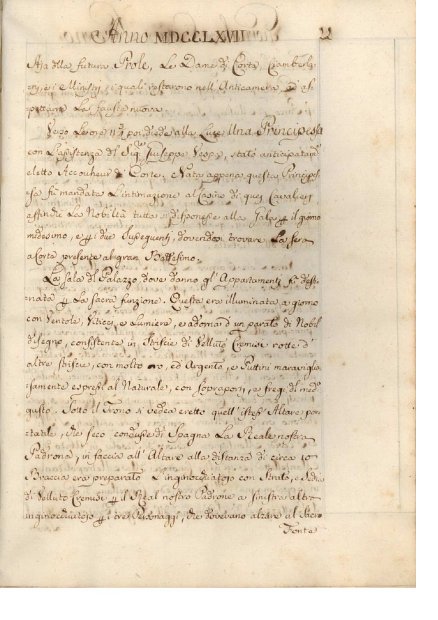 Anno MDCCLXVII 22
Aja della futura Prole, Le Dame di Corte, Ciamberla-
ni, e Ministri, i quali restarono nell'Anticamera, ad as
pettarne La fausta nuova.
Verso Le ore diede alla Luce Una Principessa
con L'assistenza del Sig.r Giuseppe Vespa, stato anticipatam.
eletto Accoucheur di Corte. Nata appena questa Principes-
sa, fu mandata L'intimazione al Casino di quei Cavalieri
affinchè La Nobiltà tutta si disponesse alla Gala p il giorno
medesimo, e p i due susseguenti, dovendosi trovare La sera
a Corte presente al gran Battesimo.
La Sala del Palazzo, dove danno gli Appartamenti fu desti-
nata p La sacra funzione. Questa era illuminata a giorno
con Ventole, Viticci, e Lumiere, e adorna d'un parato di Nobil
disegno, consistente in Striscie di Velluto Cremisi rotte d'
altre striscie, con molto oro, ed Argento, e Puttini maraviglio-
samente espressi al Naturale, con soprapori, e fregi di med.o
gusto. Sotto il Trono si vedea eretto quell'istesso Altare por-
tatile, che seco condusse di Spagna La Reale nostra
Padrona, in faccia all'Altare alla distanza di circa 10
Braccia era preparato L'inginocchiatojo con Strato, e Sedia
di Velluto Cremisi p il Real nostro Padrone a sinistra altro
inginocchiatojo p i tre Personaggi, che dovevano alzare al Sacro
Fonte